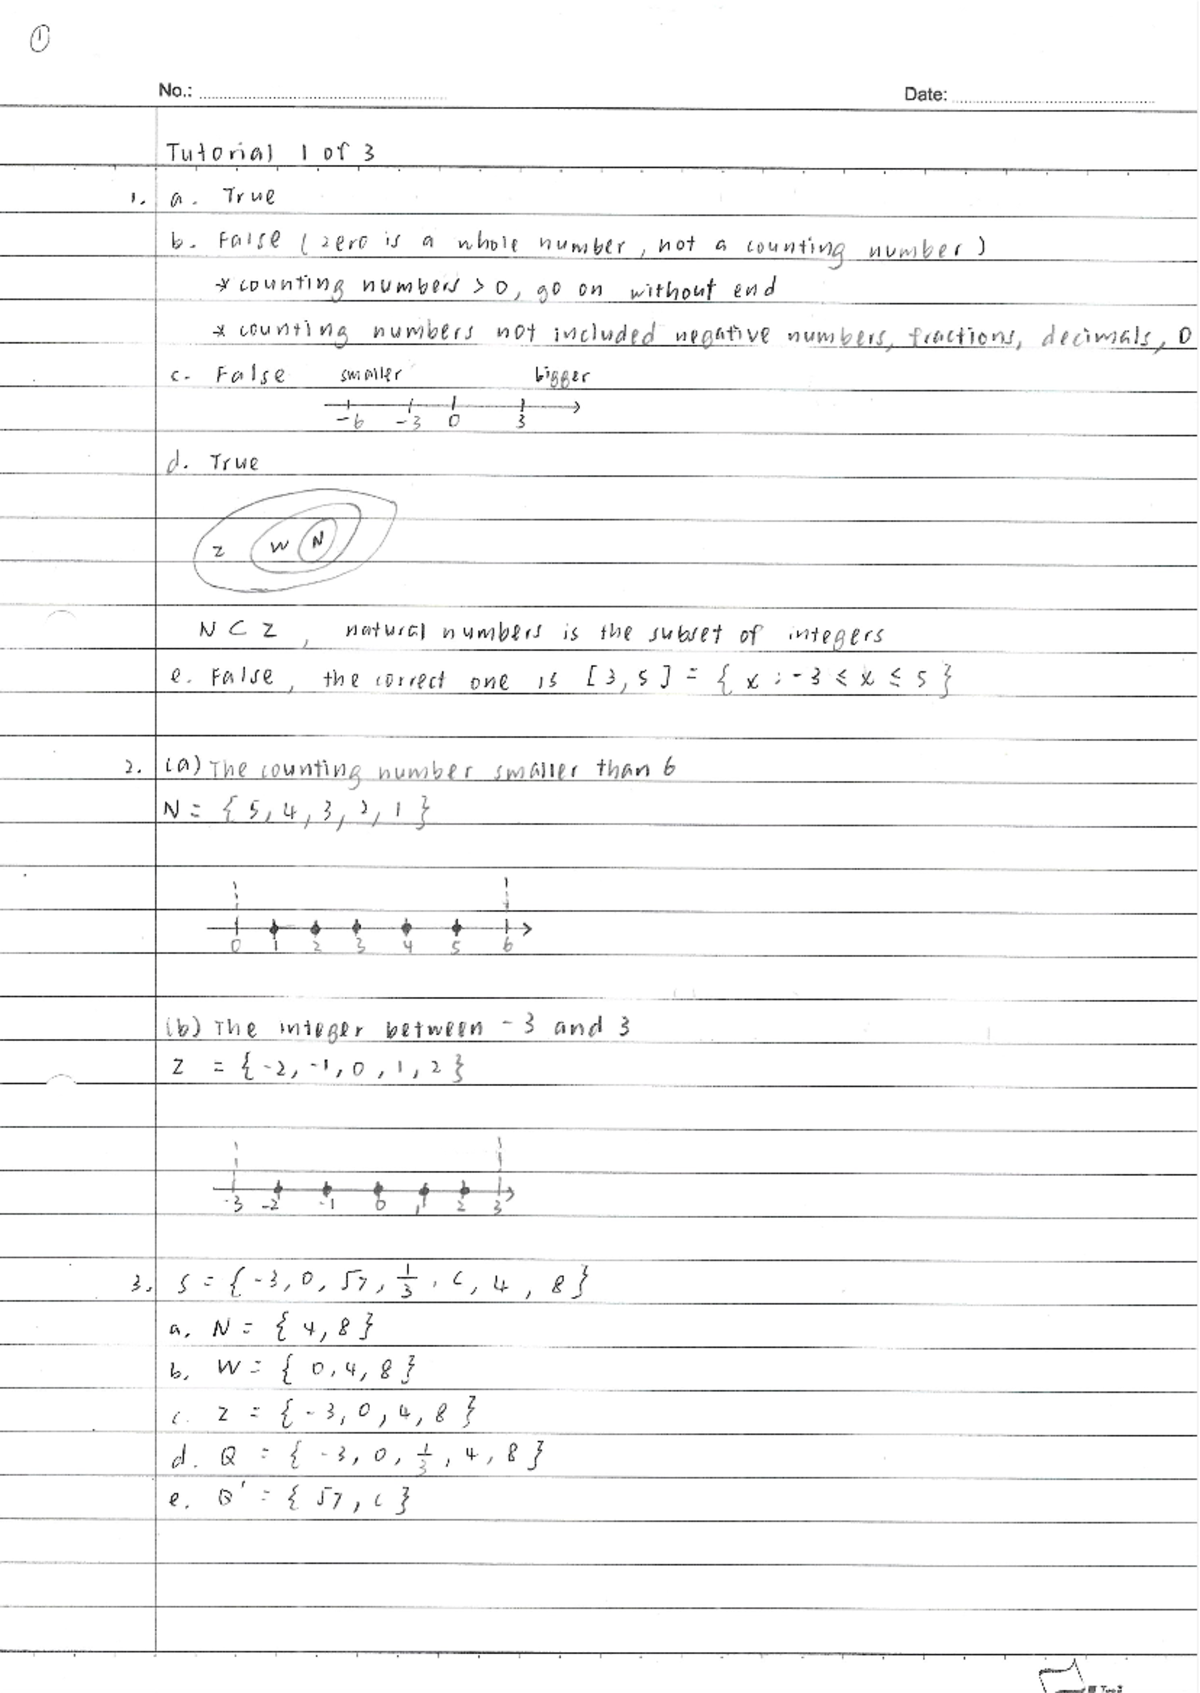 ①
No.:
Date:
Tutorial 1 of 3
1. a. True
b. False ( zero is a whole number, not a counting number )
* counting numbers > 0, go on without end
* counting numbers not included negative numbers, fractions, decimals, 0
c. False smaller bigger
-6 -3 0 3
d. True
Z W N
N ⊂ Z , natural numbers is the subset of integers
e. False, the correct one is [ 3, 5 ] = { x : -3 ≤ x ≤ 5 }
2. (a) The counting number smaller than 6
N = { 5, 4, 3, 2, 1 }
0 1 2 3 4 5 6
(b) The integer between -3 and 3
Z = { -2, -1, 0, 1, 2 }
-3 -2 -1 0 1 2 3
3. S = { -3, 0, √7, 1/3, c, 4, 8 }
a. N = { 4, 8 }
b. W = { 0, 4, 8 }
c. Z = { -3, 0, 4, 8 }
d. Q = { -3, 0, 1/3, 4, 8 }
e. Q' = { √7, c }